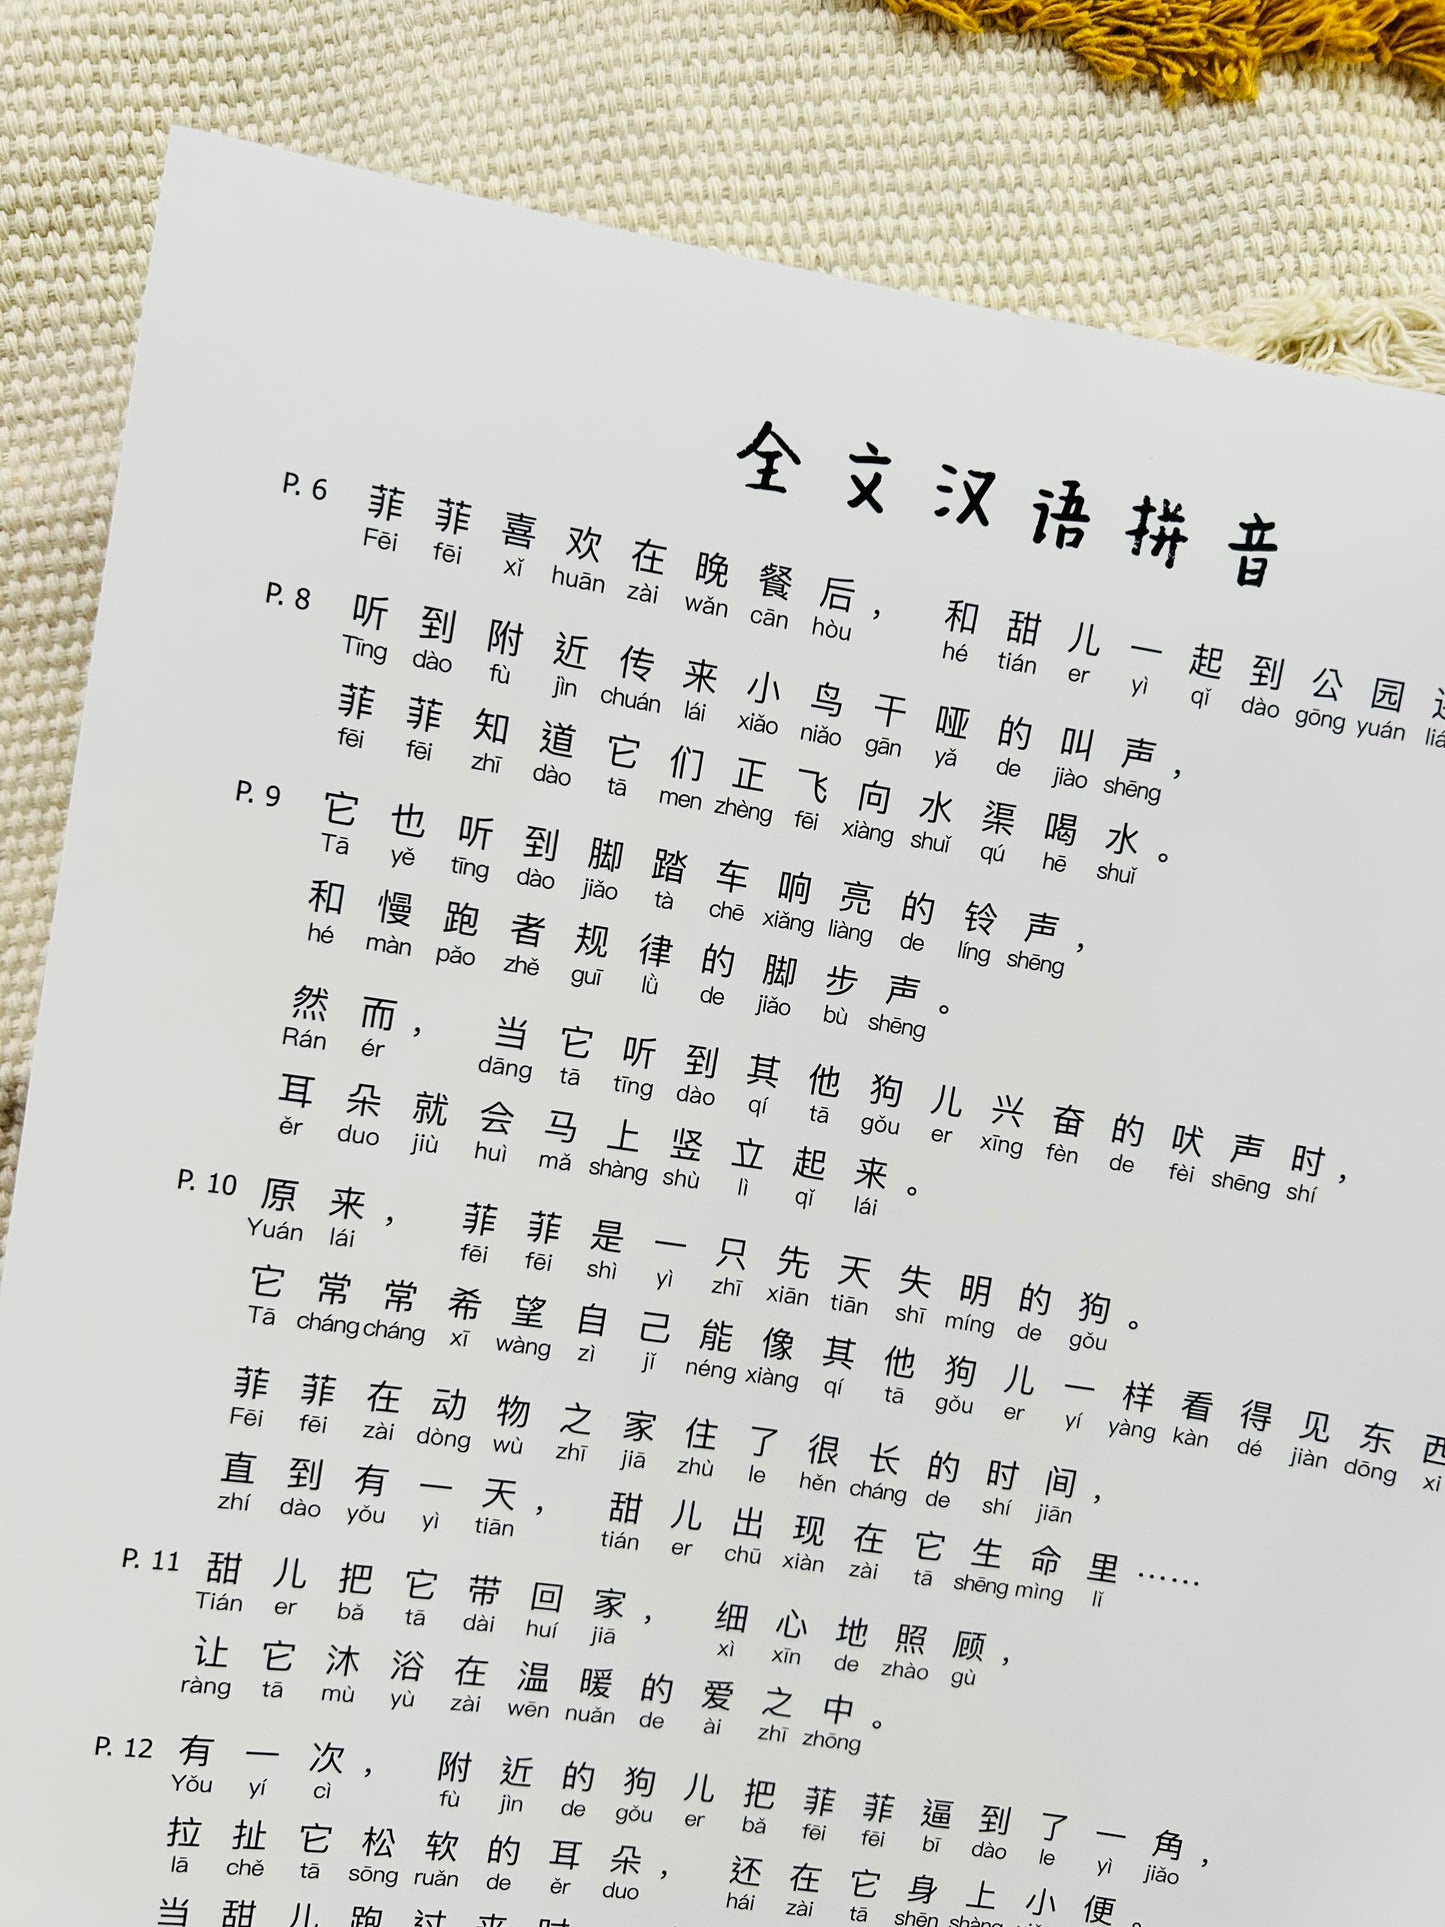 全文汉语拼音
P. 6 菲菲喜欢在晚餐后，和甜儿一起到公园
Fēi fēi xǐ huān zài wǎn cān hòu hé tián er yì qǐ dào gōng yuán
P. 8 听到附近传来小鸟干哑的叫声，
Tīng dào fù jìn chuán lái xiǎo niǎo gān yǎ de jiào shēng
菲菲知道它们正飞向水渠喝水。
fēi fēi zhī dào tā men zhèng fēi xiàng shuǐ qú hē shuǐ
P. 9 它也听到脚踏车响亮的铃声，
Tā yě tīng dào jiǎo tà chē xiǎng liàng de líng shēng
和慢跑者规律的脚步声。
hé màn pǎo zhě guī lǜ de jiǎo bù shēng
然而，当它听到其他狗儿兴奋的吠声时，
Rán ér dāng tā tīng dào qí tā gǒu er xīng fèn de fèi shēng shí
耳朵就会马上竖立起来。
ěr duo jiù huì mǎ shàng shù lì qǐ lái
P. 10 原来，菲菲是一只先天失明的狗。
Yuán lái fēi fēi shì yì zhī xiān tiān shī míng de gǒu
它常常希望自己能像其他狗儿一样看得见东西
Tā cháng cháng xī wàng zì jǐ néng xiàng qí tā gǒu er yí yàng kàn dé jiàn dōng xi
菲菲在动物之家住了很长的时间，
Fēi fēi zài dòng wù zhī jiā zhù le hěn cháng de shí jiān
直到有一天，甜儿出现在它生命里……
zhí dào yǒu yì tiān tián er chū xiàn zài tā shēng mìng lǐ
P. 11 甜儿把它带回家，细心地照顾，
Tián er bǎ tā dài huí jiā xì xīn de zhào gù
让它沐浴在温暖的爱之中。
ràng tā mù yù zài wēn nuǎn de ài zhī zhōng
P. 12 有一次，附近的狗儿把菲菲逼到了一角，
Yǒu yí cì fù jìn de gǒu er bǎ fēi fēi bī dào le yì jiǎo
拉扯它松软的耳朵，还在它身上小便。
lā chě tā sōng ruǎn de ěr duo hái zài tā shēn shàng
当甜儿跑过来时